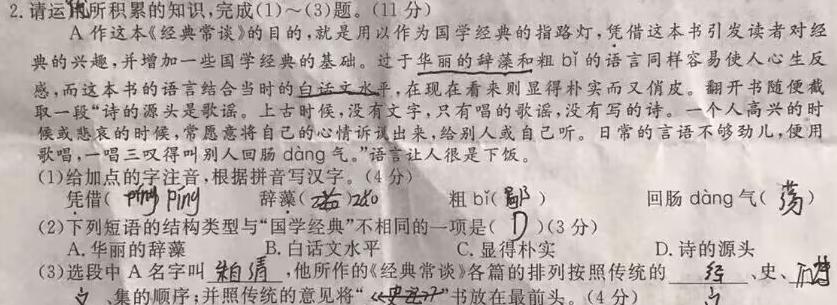 2. 请运用所积累的知识,完成(1)～(3)题。(11分)
A作这本《经典常谈》的目的,就是用以作为国学经典的指路灯,凭借这本书引发读者对经
典的兴趣,并增加一些国学经典的基础。过于华丽的辞藻和粗bǐ的语言同样容易使人心生反
感,而这本书的语言结合当时的白话文水平,在现在看来则显得朴实而又俏皮。翻开书随便截
取一段“诗的源头是歌谣。上古时候,没有文字,只有唱的歌谣,没有写的诗。一个人高兴的时
候或悲哀的时候,常愿意将自己的心情诉说出来,给别人或自己听。日常的言语不够劲儿,便用
歌唱,一唱三叹得叫别人回肠dàng气。”语言让人很是下饭。
(1)给加点的字注音,根据拼音写汉字。(4分)
凭借( píng ) 辞藻( zǎo ) 粗bǐ( 鄙 ) 回肠dàng气( 荡 )
(2)下列短语的结构类型与“国学经典”不相同的一项是( D )(3分)
A. 华丽的辞藻 B. 白话文水平 C. 显得朴实 D. 诗的源头
(3)选段中A名字叫 朱自清 ,他所作的《经典常谈》各篇的排列按照传统的 经 、史、
、集的顺序;并照传统的意见将“ ”书放在最前头。(4分)